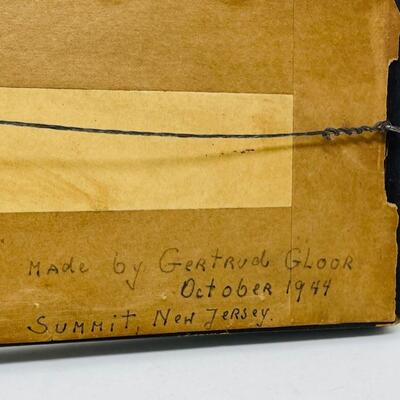 Made by Gertrud Gloor
October 1944
Summit, New Jersey.